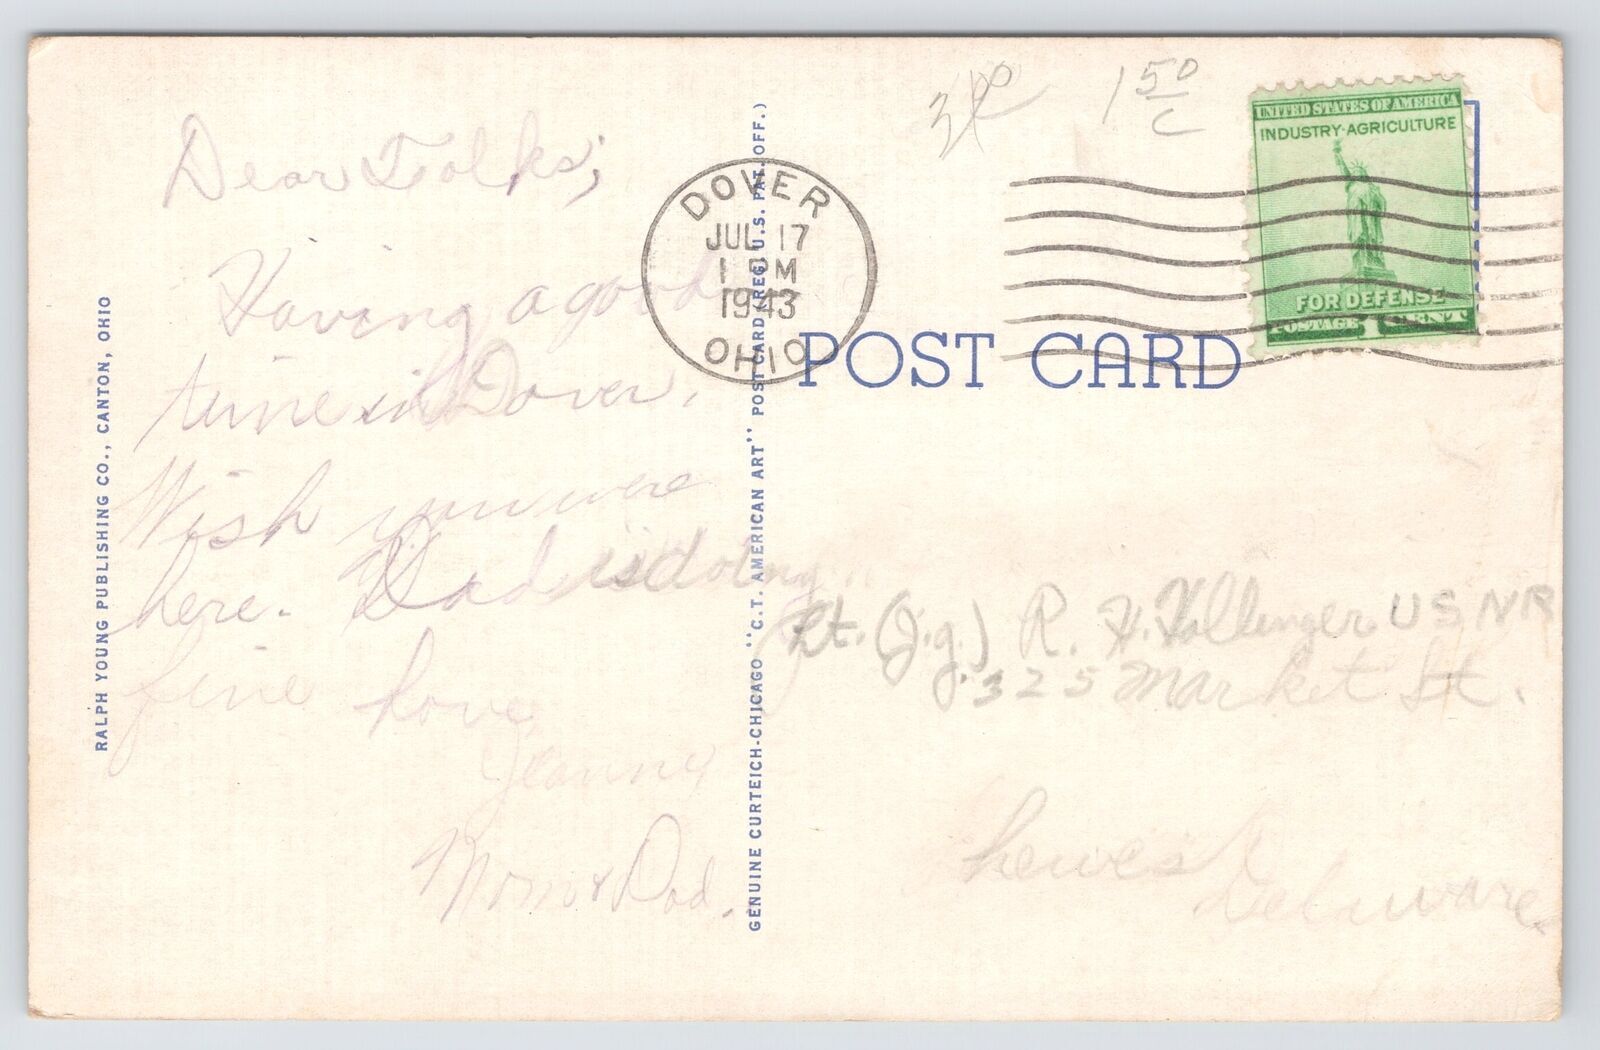 Dear Folks;
Having a good
time in Dover.
Wish you were
here. Dad is doing
fine Love,
Jeanne,
Mom & Dad.
RALPH YOUNG PUBLISHING CO., CANTON, OHIO
GENUINE CURTEICH-CHICAGO "C.T. AMERICAN ART" POST CARD (REG. U.S. PAT. OFF.)
DOVER
JUL 17
1 PM
1943
OHIO
POST CARD
1 50
C
UNITED STATES OF AMERICA
INDUSTRY·AGRICULTURE
FOR DEFENSE
POSTAGE 1 CENT
Lt. (J.g.) R. H. Hollinger USNR
325 Market St.
Lewes
Delaware.